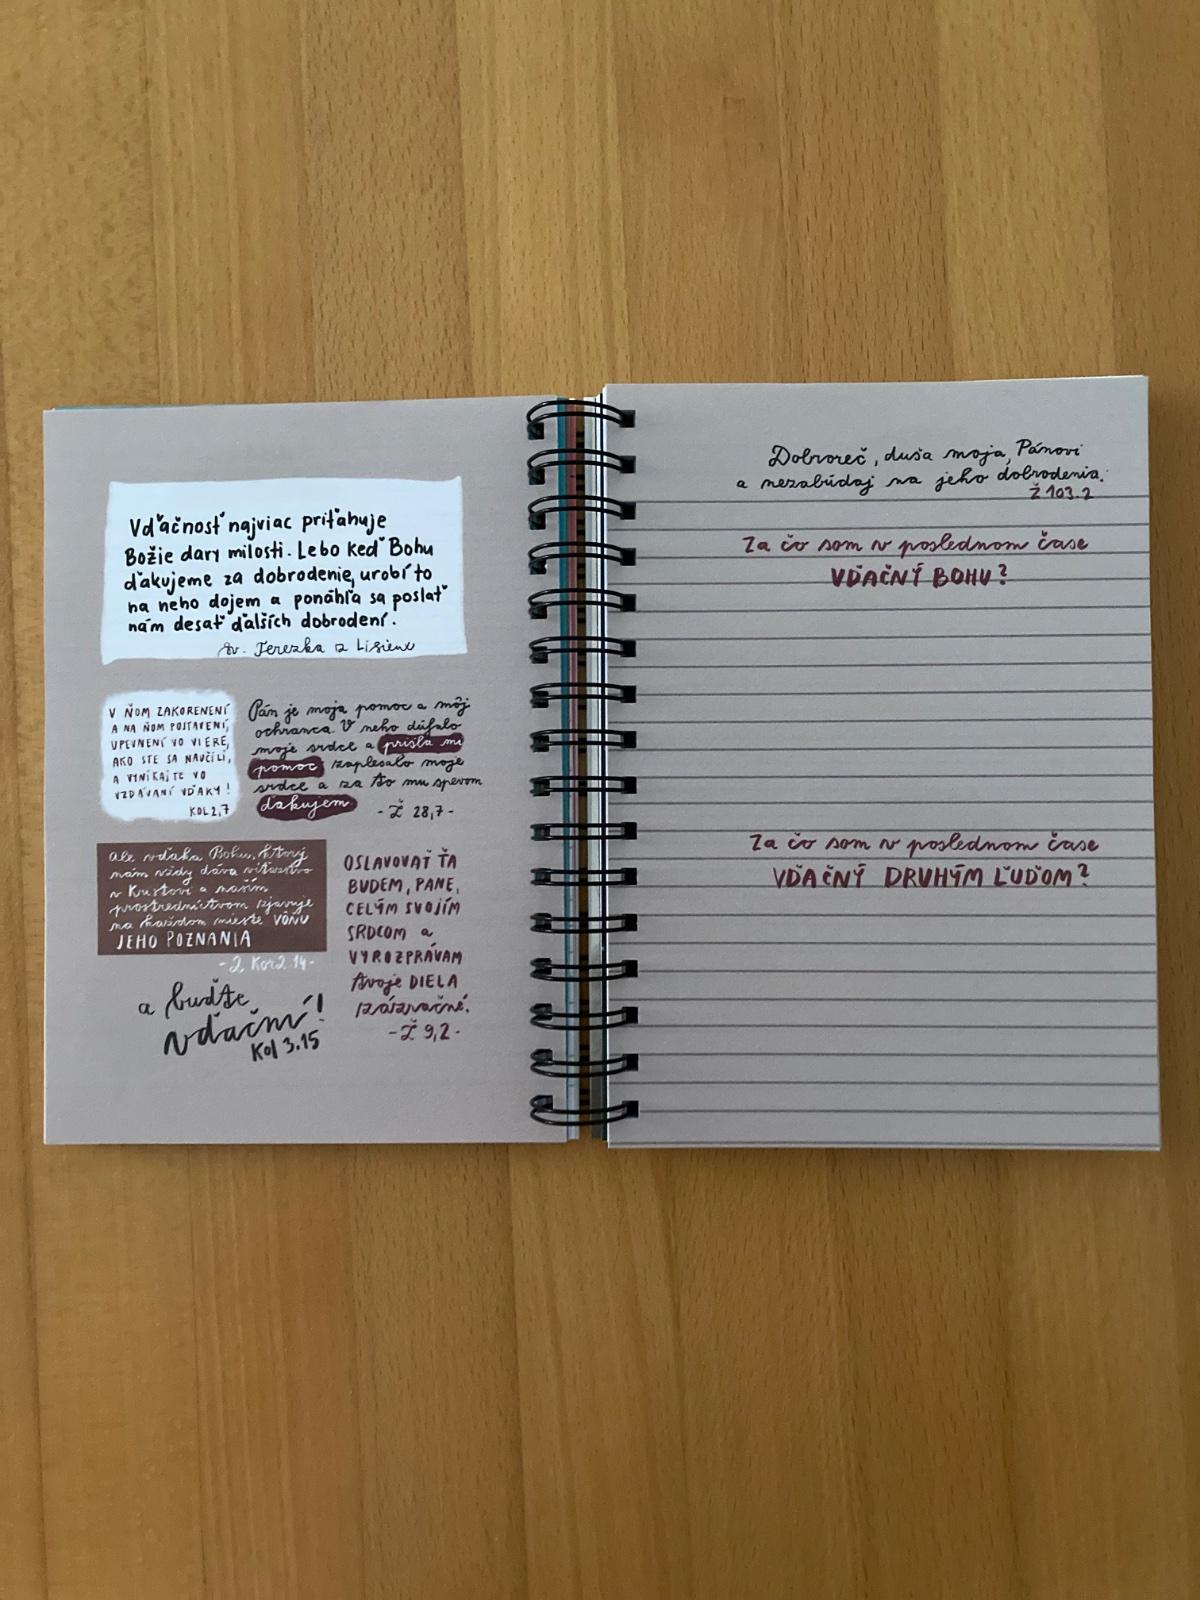 Vďačnosť najviac priťahuje
Božie dary milosti. Lebo keď Bohu
ďakujeme za dobrodenie, urobí to
na neho dojem a ponáhľa sa poslať
nám desať ďalších dobrodení.
sv. Terezka z Lisieux
V ŇOM ZAKORENENÍ
A NA ŇOM POSTAVENÍ,
UPEVNENÍ VO VIERE,
AKO STE SA NAUČILI,
A VYNIKAJTE VO
VZDÁVANÍ VĎAKY!
KOL 2,7
Pán je moja pomoc a môj
ochranca. V neho dúfalo
moje srdce a prišla mi
pomoc zaplesalo moje
srdce a za to mu spevom
ďakujem.
- Ž 28,7 -
ale vďaka Bohu, ktorý
nám vždy dáva víťazstvo
v Kristovi a naším
prostredníctvom zjavuje
na každom mieste VÔŇU
JEHO POZNANIA
- 2. Kor 2.14 -
a buďte
vďační!
Kol 3.15
OSLAVOVAŤ ŤA
BUDEM, PANE,
CELÝM SVOJÍM
SRDCOM a
VYROZPRÁVAM
tvoje DIELA
zázračné.
- Ž 9,2 -
Dobroreč, duša moja, Pánovi
a nezabúdaj na jeho dobrodenia.
Ž 103.2
Za čo som v poslednom čase
VĎAČNÝ BOHU?
Za čo som v poslednom čase
VĎAČNÝ DRUHÝM ĽUĎOM?